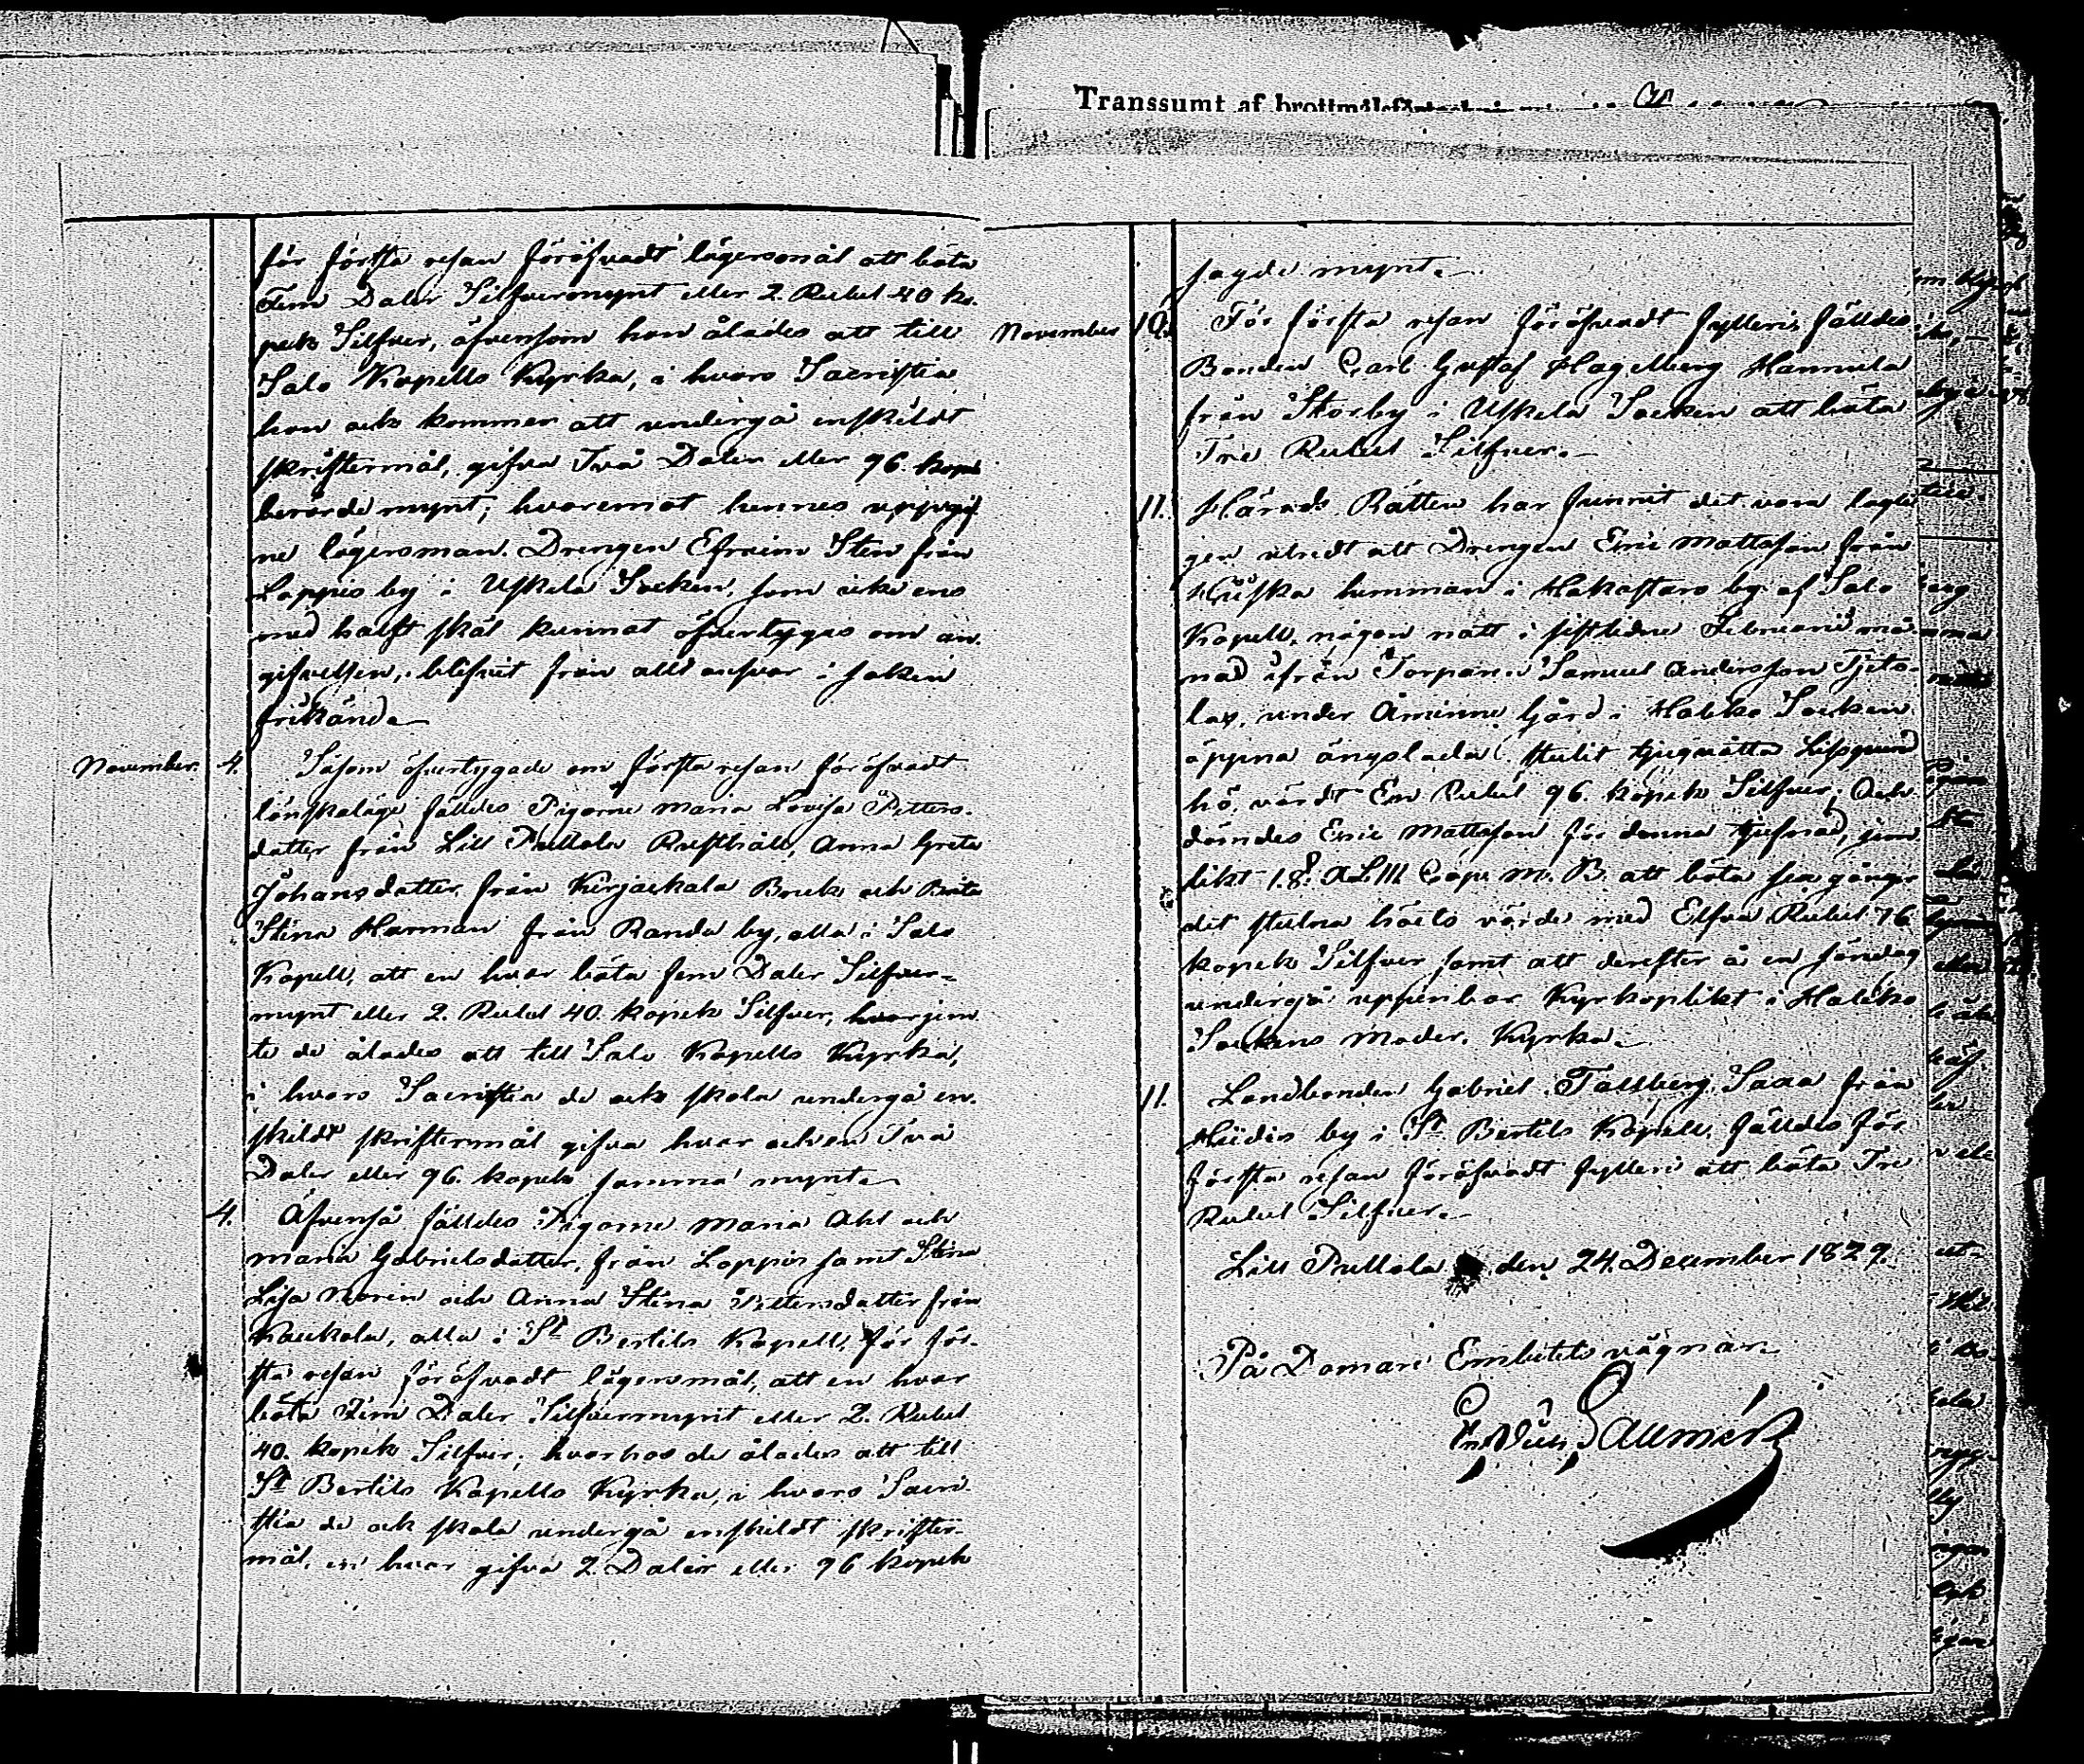 för första resan föröfvadt lägersmål att böta
Fem Daler Silfvermynt eller 2. Rubel 40 ko-
pek Silfver, äfvensom hon ålades att till
Salo Kapells Kyrka, i hvars Sacristia
hon ock kommer att undergå enskildt
skriftermål, gifva Två Daler eller 96. kopek
berörde mynt; hvaremot hennes uppgif
ne lägersman Drengen Efraim Sten från
Loppis by i Uskela Socken, som icke ens
med halft skäl kunnat öfvertygas om an-
gifvelsen, blifvit från allt ansvar i saken
frikänd.
November. 4. Såsom öfvertygade om första resan föröfvadt
lönskaläge fälldes Pigorne Maria Lovisa Petters-
dotter från Lill Pullola Rusthåll, Anna Greta
Johansdotter från Kirjackala Bruk och Brita
Stina Harman från Randa by, alla i Salo
Kapell, att en hvar böta fem Daler Silfver-
mynt eller 2. Rubel 40. kopek Silfver, hvarjem-
te de ålades att till Salo Kapells Kyrka,
i hvars Sacristia de ock skola undergå en-
skildt skriftermål gifva hvar och en Två
Daler eller 96. kopek samma mynt.
4. Äfvenså fälldes Pigorne Maria Ahl och
Maria Gabrielsdotter, från Loppis samt Stina
Lisa Norin och Anna Stina Pettersdotter från
Kaukola, alla i S:t Bertils Kapell, för för-
sta resan föröfvadt lägersmål, att en hvar
böta Fem Daler Silfvermynt eller 2. Rubel
40. kopek Silfver; hvarhos de ålades att till
S:t Bertils Kapells Kyrka, i hvars Sacri-
stia de ock skola undergå enskildt skrifter-
mål, en hvar gifva 2. Daler eller 96 kopek
Transsumt af
sagde mynt.
November 10. För första resan föröfvadt fylleri fälldes
Bonden Carl Gustaf Hagelberg Hannula
från Storby i Uskela Socken att böta
Tre Rubel Silfver.
11. Härads Rätten har funnit det vara lagli
gen utredt att Drengen Eric Mattsson från
Kuska hemman i Hakostaro by af Salo
Kapell, någon natt i sistledne Februarii må-
nad ifrån Torparen Samuel Andersson Tjeto-
lax, under Åminne Gård i Haliko Socken
öppna ängslada stulit tjuguåtta Lispund
hö, värdt En Rubel 96. kopek Silfver; Och
dömdes Eric Mattsson för denna tjufnad, jem-
likt 1. §. XLIII Cap. M. B. att böta sex gånger
det stulna höets värde med Elfva Rubel 76
kopek Silfver samt att derefter å en söndag
undergå uppenbar Kyrkoplikt i Haliko
Sockens Moder Kyrka.
11. Landbonden Gabriel Tallberg Saxa från
Hiidis by i S:t Bertils Kapell, fälldes för
första resan föröfvadt fylleri att böta Tre
Rubel Silfver.
Lill Pullola den 24. December 1829.
På Domare Embetets vägnar